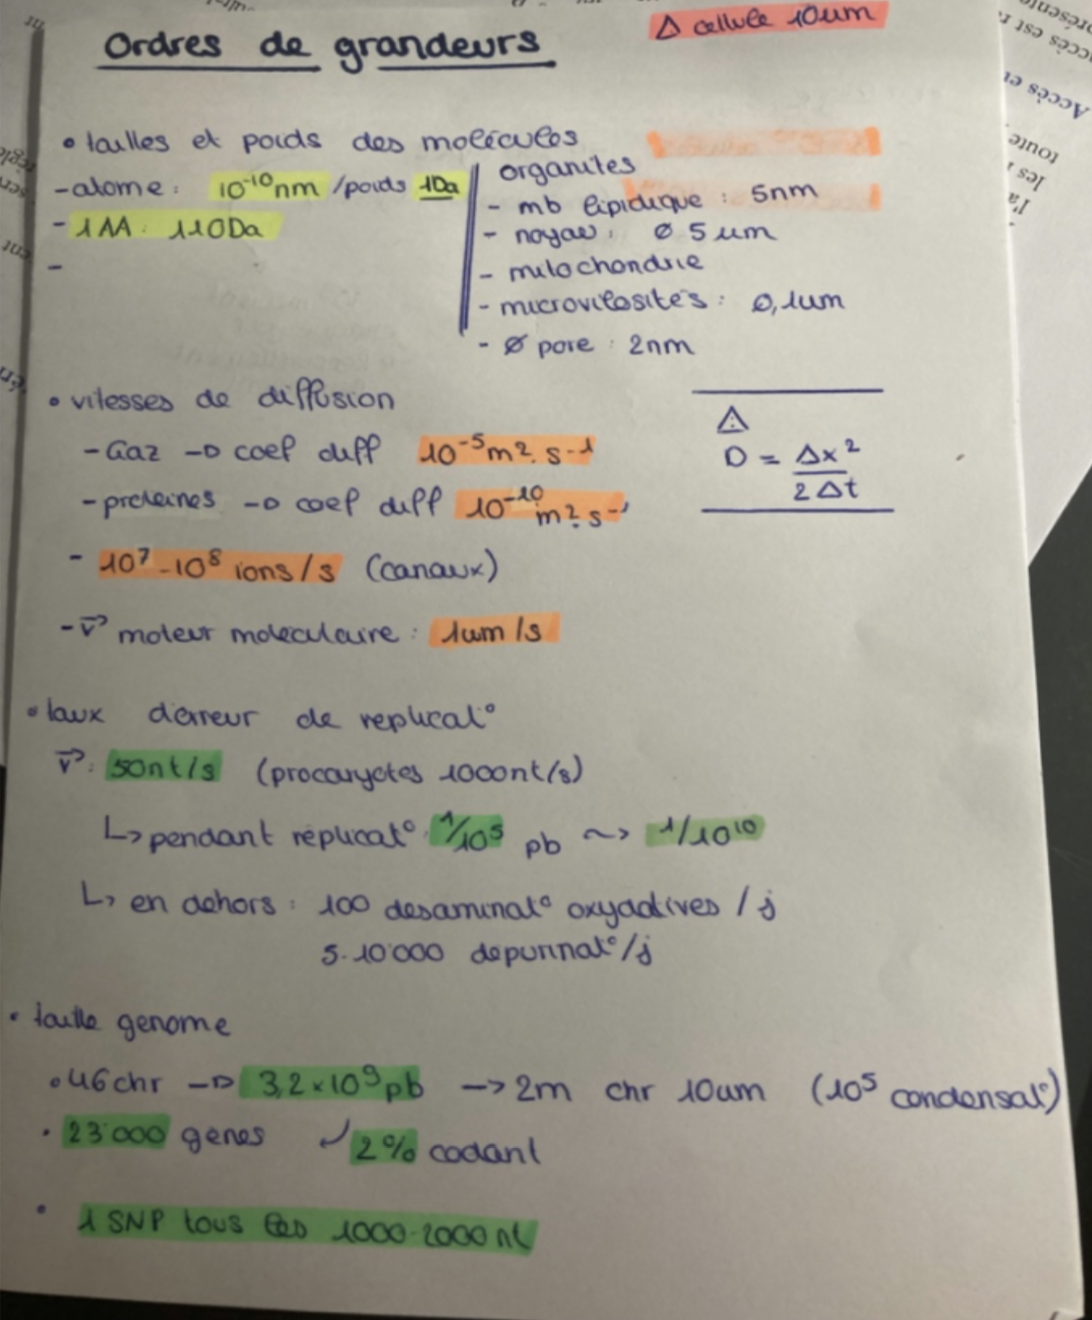 Ordres de grandeurs
Δ cellule 10um
• tailles et poids des molécules
- atome : 10⁻¹⁰nm / poids 1Da
- 1 AA : 110Da
-
organites
- mb lipidique : 5nm
- noyau : ø 5 um
- mitochondrie
- microvilosités : 0,1um
- ø pore : 2nm
• vitesses de diffusion
- Gaz → coef diff 10⁻⁵m².s⁻¹
- proteines → coef diff 10⁻¹⁰ m².s⁻¹
- 10⁷-10⁸ ions/s (canaux)
- v⃗ moteur moleculaire : 1um/s
⚠
D = Δx² / 2Δt
• taux d'erreur de replicat°
v⃗ : 50nt/s (procaryotes 1000nt/s)
↳ pendant replicat° 1/10⁵ pb ~> 1/10¹⁰
↳ en dehors : 100 desaminat° oxyadtives / j
5-10'000 depurinat°/j
• taille genome
• 46 chr → 3,2 × 10⁹ pb → 2m chr 10um (10⁵ condensat°)
• 23'000 genes 2% codant
• 1 SNP tous les 1000-2000 nt
Accès et
toute
les
l'a